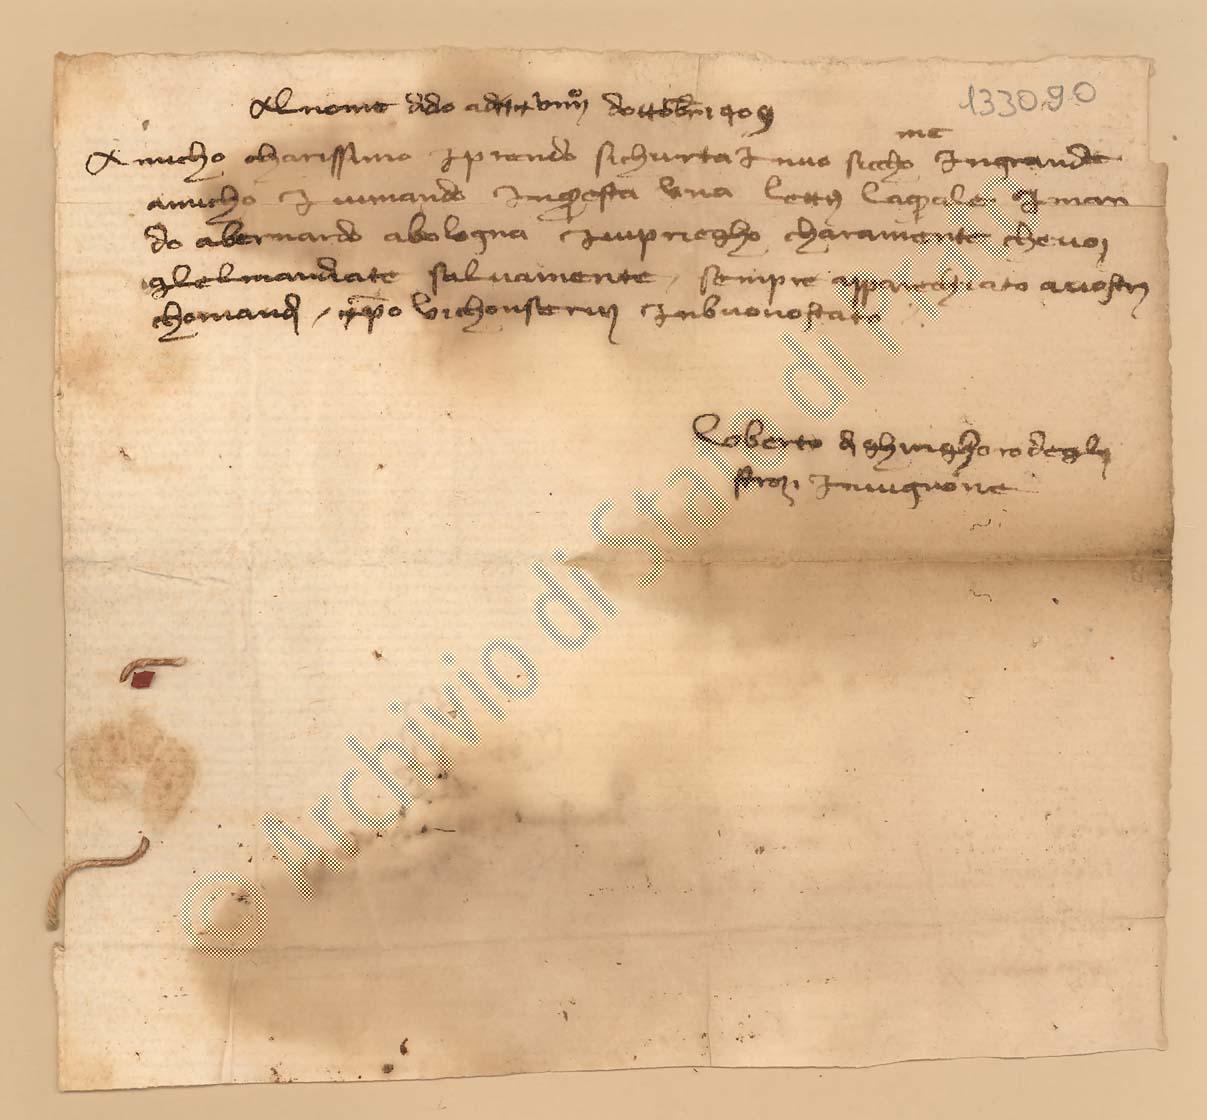 133090
Al nome dido adi xxviiij dottobre 1409
me
Amicho charissimo I prendo sichurta I nvoi siccho Ingrande
amicho I vi mando Inquesta una lettera laquale I man
do abernardo abologna I vi priegho charamente che voi
glelmandiate salvamente / sempre apparechiato avostri
chomandi / cristo vi chonservi Inbuonostato
Loberto di ghinghero deglj
strozi I nvignone
© Archivio di Stato di Prato